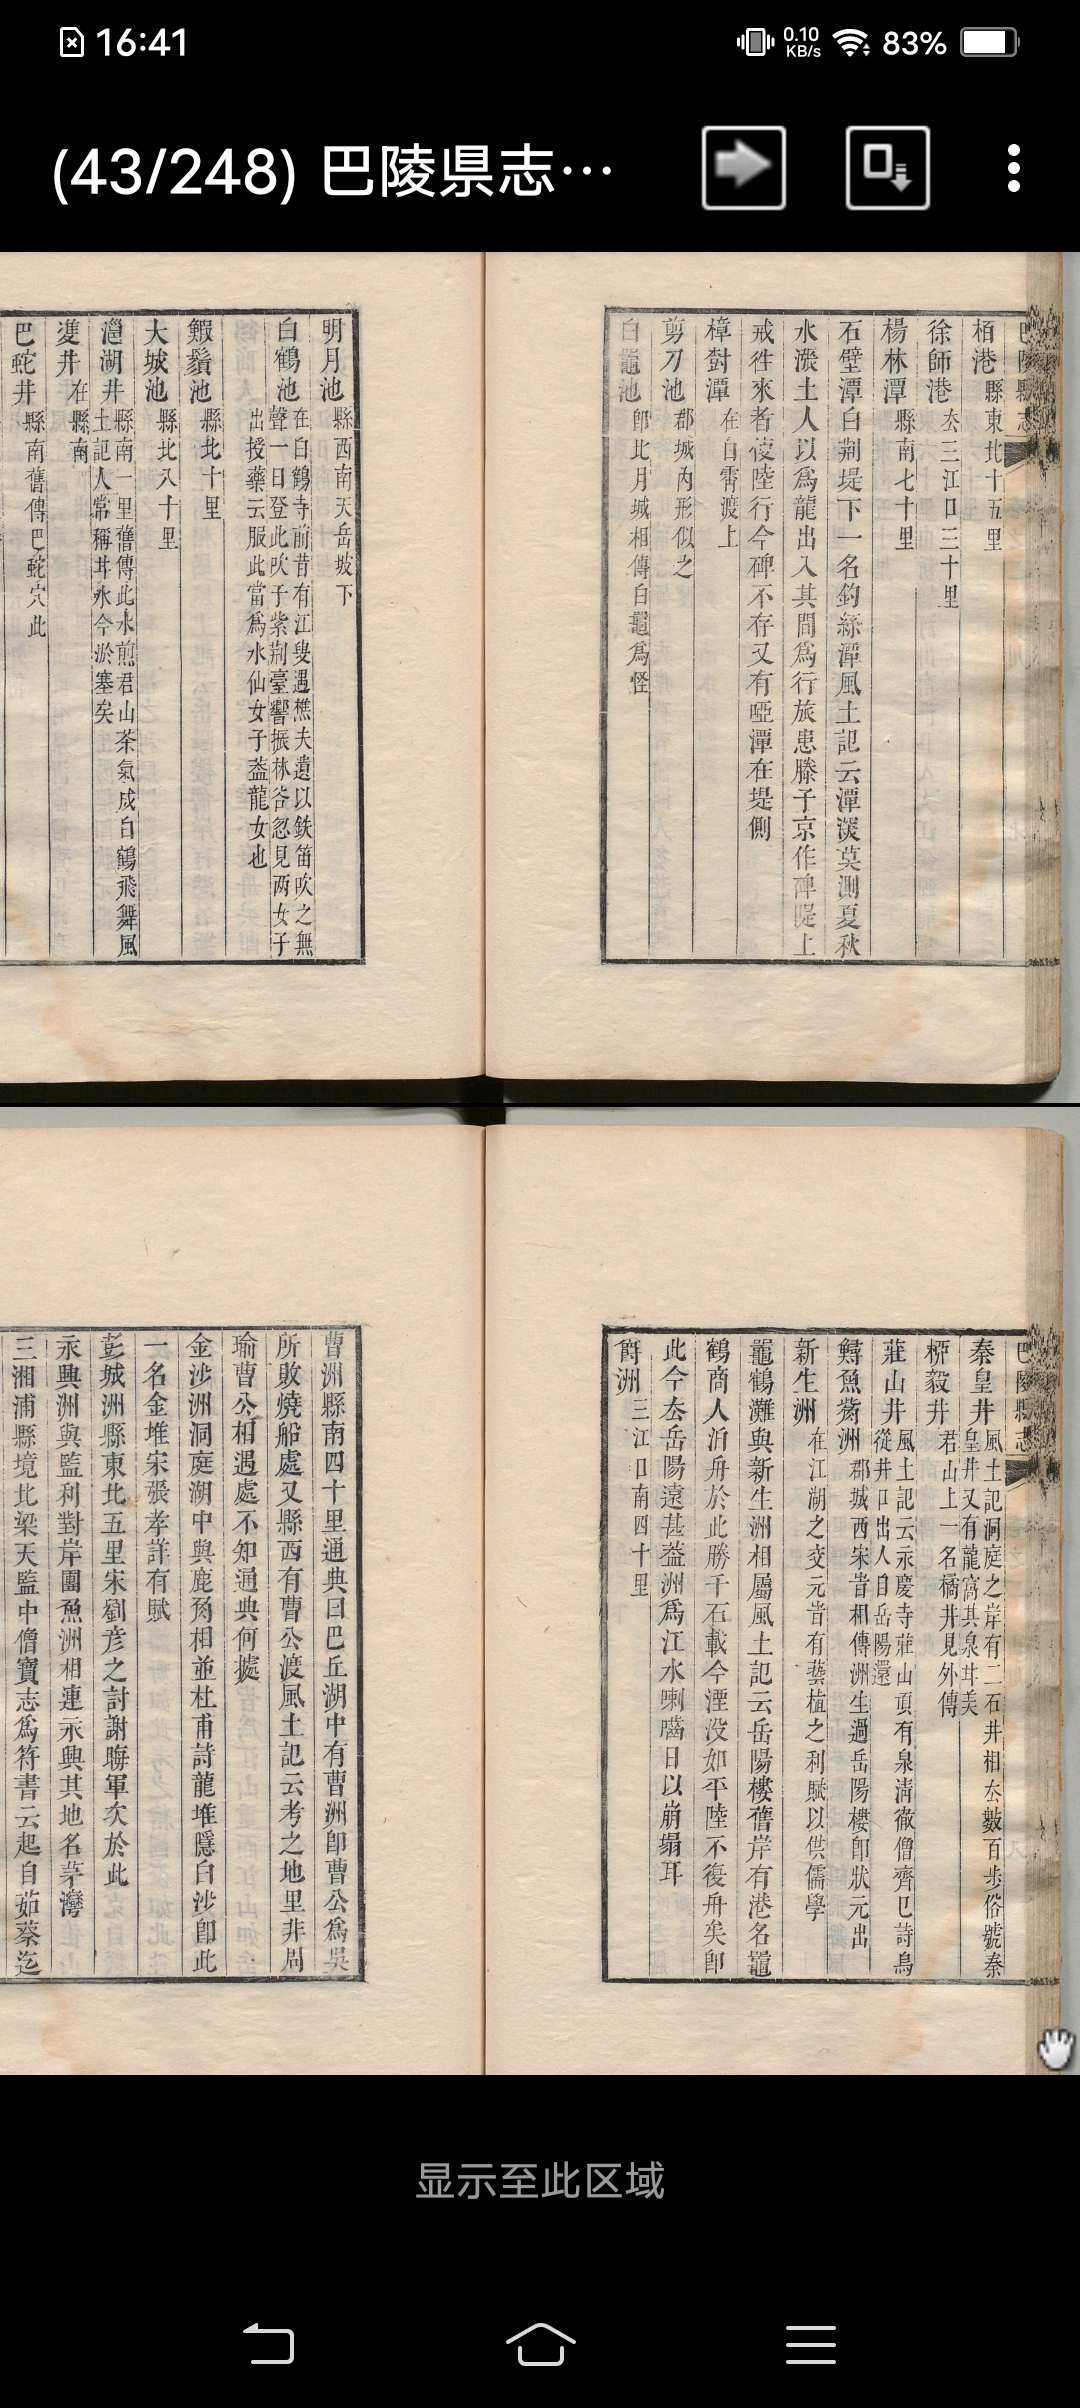 16:41
0.10 KB/s
83%
(43/248) 巴陵県志…
巴陵縣志
栢港 縣東北十五里
徐師港 去三江口三十里
楊林潭 縣南七十里
石壁潭白荆堤下一名釣絲潭風土記云潭深莫測夏秋
水漲土人以爲龍出入其間爲行旅患滕子京作碑堤上
戒徃來者使陸行今碑不存又有啞潭在堤側
樟對潭 在白霄渡上
剪刀池 郡城內形似之
白鼉池 即北月城相傳白鼉爲怪
明月池 縣西南天岳坡下
白鶴池 在白鶴寺前昔有江叟遇樵夫遺以鉄笛吹之無
聲一日登此吹于紫荆臺響振林谷忽見两女子
出授藥云服此當爲水仙女子葢龍女也
鰕鬚池 縣北十里
大城池 縣北八十里
㴩湖井 縣南一里舊傳此水煎君山茶氣成白鶴飛舞風
土記人常稱井水今淤塞矣
雙井 在縣南
巴蛇井 縣南舊傳巴蛇穴此
巴陵縣志
秦皇井 風土記洞庭之岸有二石井相去數百步俗號秦
皇井又有龍窩其泉甘美
柳毅井 君山上一名橘井見外傳
莊山井 風土記云永慶寺莊山頂有泉淸徹僧齊巴詩鳥
從井口出人自岳陽還
鱘魚觜洲 郡城西宋昔相傳洲生過岳陽樓即狀元出
新生洲 在江湖之交元昔有藝植之利賦以供儒學
鼉鶴灘與新生洲相屬風土記云岳陽樓舊岸有港名鼉
鶴商人泊舟於此勝千石載今湮没如平陸不復舟矣即
此今去岳陽遠甚葢洲爲江水喇嚙日以崩塌耳
爵洲 三江口南四十里
曹洲縣南四十里通典曰巴丘湖中有曹洲即曹公爲吳
所敗燒船處又縣西有曹公渡風土記云考之地里非周
瑜曹公相遇處不知通典何㨿
金沙洲洞庭湖中與鹿角相並杜甫詩龍堆隱白沙即此
一名金堆宋張孝詳有賦
彭城洲縣東北五里宋劉彦之討謝晦軍次於此
永興洲與監利對岸團魚洲相連永興其地名茅灣
三湘浦縣境北梁天監中僧寶志爲符書云起自茹蔡迄
显示至此区域